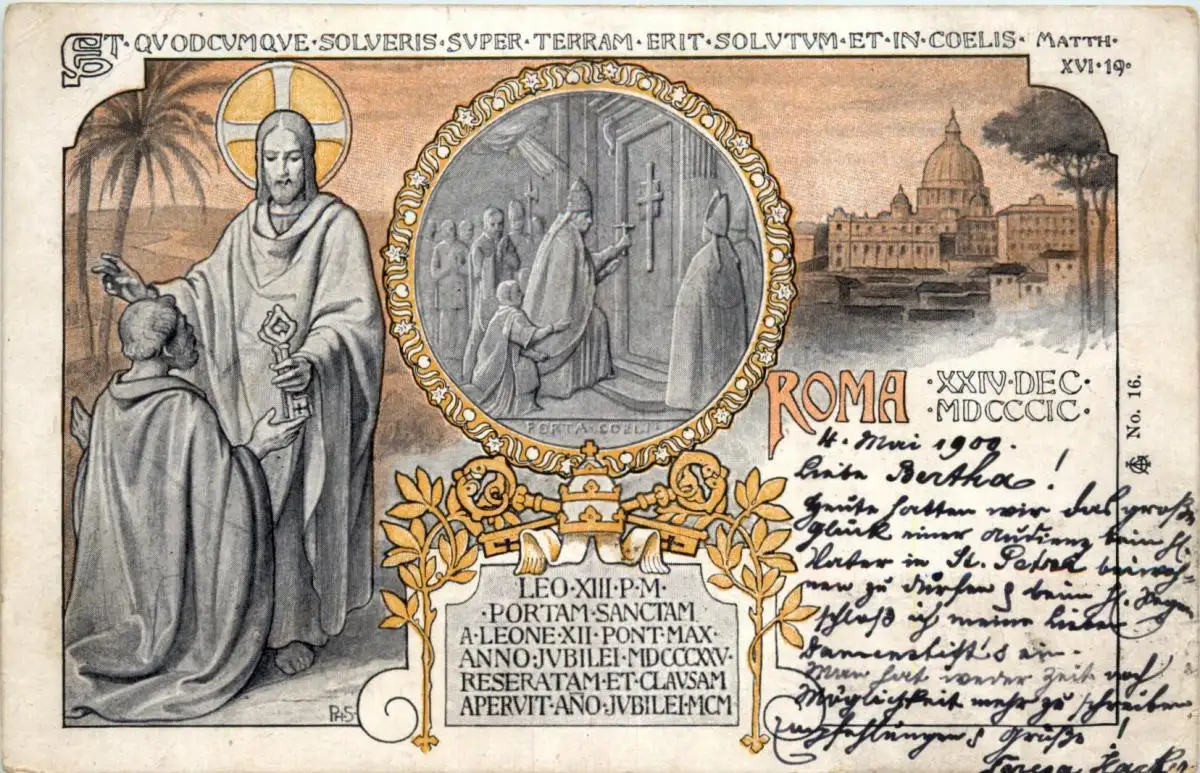 ET·QVODCVMQVE·SOLVERIS·SVPER·TERRAM·ERIT·SOLVTVM·ET·IN·COELIS· MATTH·
XVI·19·
PORTA·COELI
ROMA ·XXIV·DEC·
·MDCCCIC·
No. 16.
4. Mai 1900.
Liebe Bertha!
Heute hatten wir das große
Glück einer Audienz beim hl.
Vater in St. Peter beiwoh-
nen zu dürfen & beim hl. Segen
schloß ich meine lieben
Damenstift's ein.
Man hat weder Zeit noch
Möglichkeit mehr zu schreiben
Empfehlungen & Grüße!
Teresa
LEO·XIII·P·M·
·PORTAM·SANCTAM
A·LEONE·XII·PONT·MAX·
ANNO·JVBILEI·MDCCCXXV·
RESERATAM·ET·CLAVSAM
APERVIT·AÑO·JVBILEI·MCM
PAS